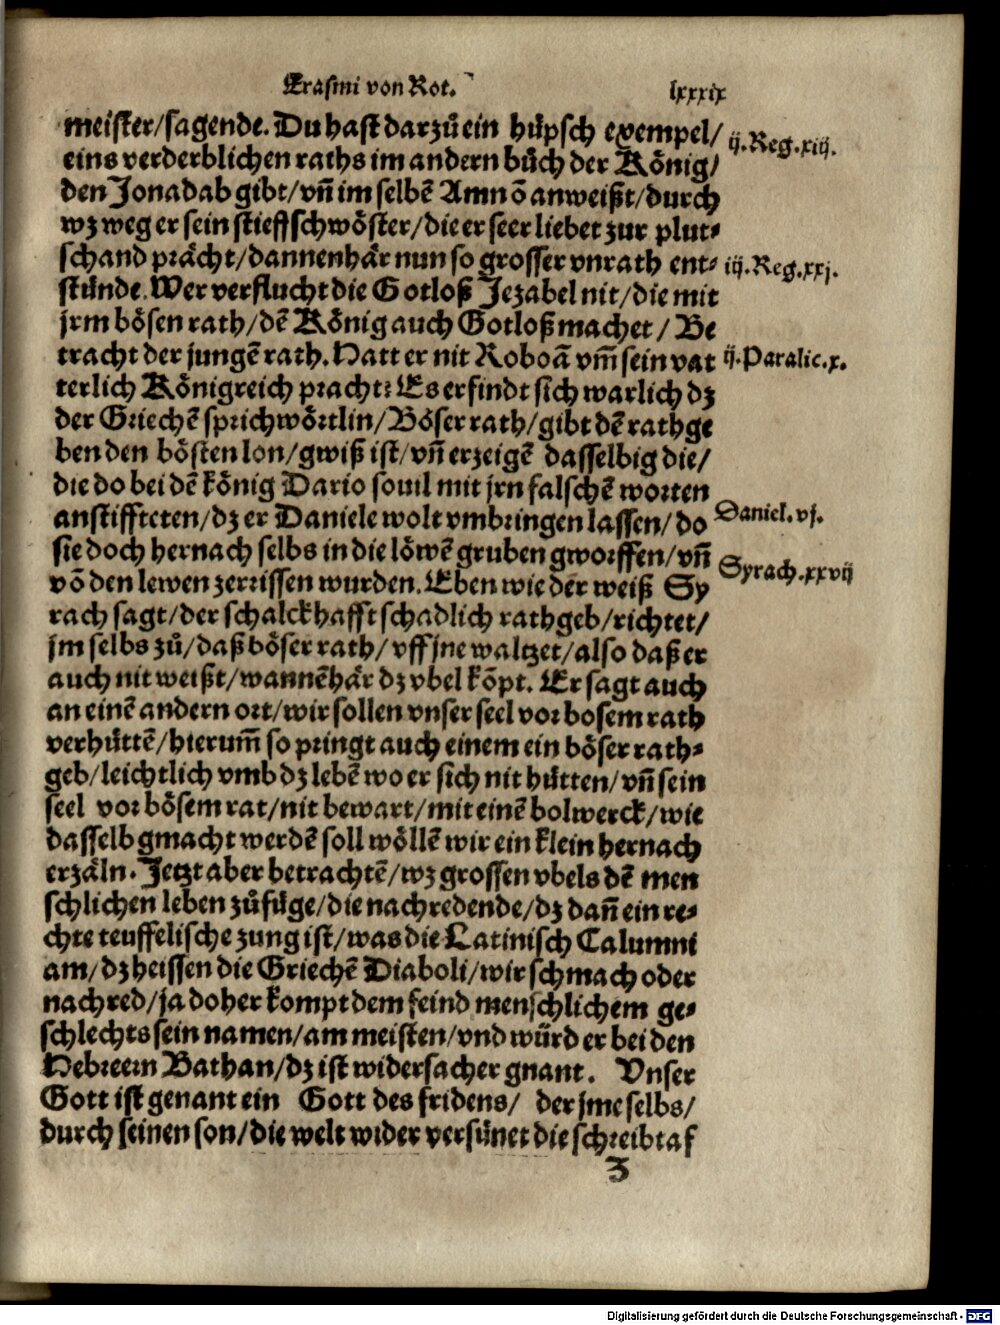 Erasmi von Rot.
lxxxix
meister/sagende. Du hast darzů ein hüpsch exempel/
ij. Reg. xiij.
eins verderblichen raths im andern bůch der König/
den Jonadab gibt/vñ im selbē Amnō anweißt/durch
wz weg er sein stieffschwöster/die er seer liebet zur plut⸗
schand prächt/dannenhär nun so grosser vnrath ent⸗
iij. Reg. xxj.
stünde. Wer verflucht die Gotloß Jezabel nit/die mit
jrm bösen rath/dē König auch Gotloß machet/ Be
tracht der jungē rath. Hatt er nit Roboā vm̃ sein vat
ij. Paralic. x.
terlich Königreich pracht? Es erfindt sich warlich dz
der Griechē sprichwörtlin/Böser rath/gibt dē rathge
ben den bösten lon/gwiß ist/vñ erzeigē dasselbig die/
die do bei dē könig Dario souil mit jrn falschē worten
anstiffteten/dz er Daniele wolt vmbringen lassen/do
Daniel. vj.
sie doch hernach selbs in die löwē gruben gworffen/vñ
Syrach. xxvij
võ den lewen zerrissen wurden. Eben wie der weiß Sy
rach sagt/der schalckhafft schadlich rathgeb/richtet/
jm selbs zů/daß böser rath/vff jne waltzet/also daß er
auch nit weißt/wannēhär dz vbel kõpt. Er sagt auch
an einē andern ort/wir sollen vnser seel vor bosem rath
verhüttē/hierum̃ so pringt auch einem ein böser rath⸗
geb/leichtlich vmb dz lebē wo er sich nit hütten/vñ sein
seel vor bösem rat/nit bewart/mit einē bolwerck/wie
dasselb gmacht werdē soll wöllē wir ein klein hernach
erzäln. Jetzt aber betrachtē/wz grossen vbels dē men
schlichen leben zůfüge/die nachredende/dz dañ ein re⸗
chte teuffelische zung ist/was die Latinisch Calumni
am/dz heissen die Griechē Diaboli/wir schmach oder
nachred/ja doher kompt dem feind menschlichem ge⸗
schlechts sein namen/am meisten/vnd würd er bei den
Hebreern Bathan/dz ist widersacher gnant. Vnser
Gott ist genant ein Gott des fridens/ der jme selbs/
durch seinen son/die welt wider versünet die schreibtaf
Z
Digitalisierung gefördert durch die Deutsche Forschungsgemeinschaft - DFG